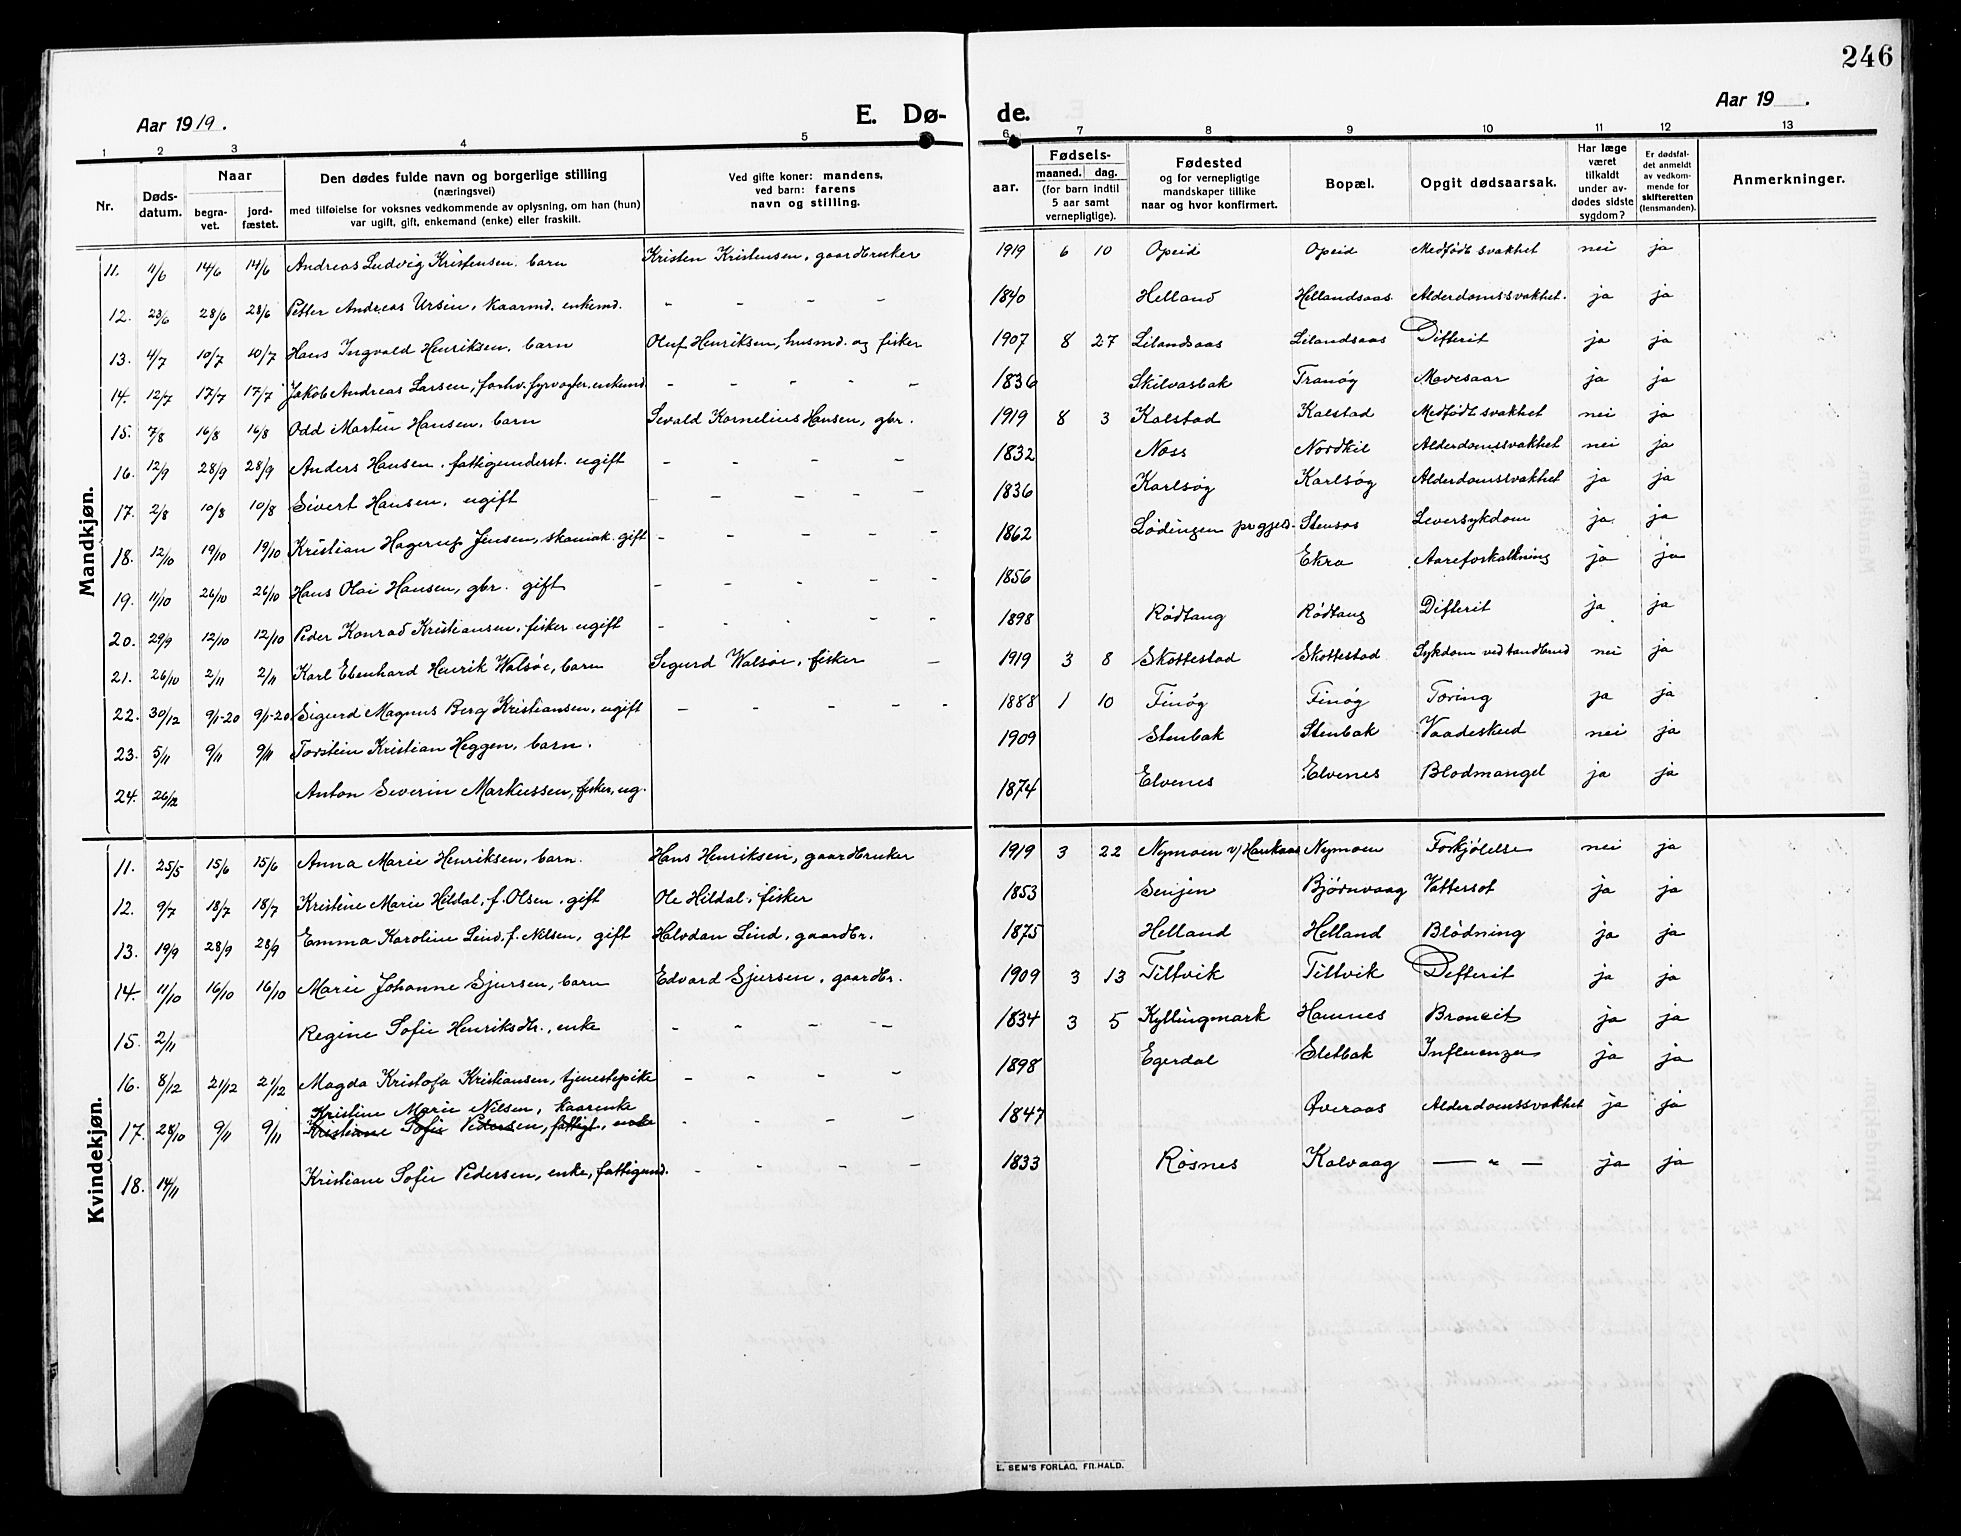 246
Aar 1919.
E. Dø-
de.
Aar 19 .
1 2 3 4 5 6 7 8 9 10 11 12 13
Nr.
Døds-
datum.
Naar
begra-
vet.
jord-
fæstet.
Den dødes fulde navn og borgerlige stilling
(næringsvei)
med tilføielse for voksnes vedkommende av oplysning, om han (hun)
var ugift, gift, enkemand (enke) eller fraskilt.
Ved gifte koner: mandens,
ved barn: farens
navn og stilling.
Fødsels-
aar.
maaned.
dag.
(for barn indtil
5 aar samt
vernepligtige).
Fødested
og for vernepligtige
mandskaper tillike
naar og hvor konfirmert.
Bopæl.
Opgit dødsaarsak.
Har læge
været
tilkaldt
under av-
dødes sidste
sygdom?
Er dødsfal-
det anmeldt
av vedkom-
mende for
skifteretten
(lensmanden).
Anmerkninger.
Mandkjøn.
11. 11/6 14/6 14/6 Andreas Ludvig Kristensen. barn Kristen Kristensen, gaardbruker 1919 6 10 Opeid Opeid Medfødt svakhet nei ja
12. 23/6 28/6 28/6 Petter Andreas Ursin, kaarmd. enkemd. - - - - 1840 Helland Hellandsaas Alderdomssvakhet. ja ja
13. 4/7 10/7 10/7 Hans Ingvald Henriksen. barn Oluf Henriksen, husmd. og fisker 1907 8 27 Leilandsaas Leilandsaas Difterit ja ja
14. 12/7 17/7 17/7 Jakob Andreas Larsen, forhv. fyrvogter. enkemd - - - - - 1836 Skilvasbak Tranøy Mavesaar ja ja
15. 7/8 16/8 16/8 Odd Martin Hansen, barn Sevald Kornelius Hansen, gbr. 1919 8 3 Kalstad Kalstad Medfødt svakhet nei ja
16. 12/9 28/9 28/9 Anders Hansen, fattigunderst. ugift - - - - 1832 Næss Nordkil Alderdomssvakhet nei ja
17. 2/8 10/8 10/8 Sivert Hansen, ugift - - - - - 1836 Karlsøy Karlsøy Alderdomssvakhet ja ja
18. 12/10 19/10 19/10 Kristian Hagerup Jensen, skomak. gift - - - - - 1862 Lødingen prgjeld. Stensos Leversykdom ja ja
19. 11/10 26/10 26/10 Hans Olai Hansen, gbr. gift - - - - - 1856 Ekra Aareforkalkning ja ja
20. 29/9 12/10 12/10 Peder Konrad Kristiansen, fisker ugift - - - - - 1898 Rødtang Rødtang Difterit ja ja
21. 26/10 2/11 2/11 Karl Ebenhard Henrik Walsøe, barn Sigurd Walsøe, fisker - 1919 3 8 Skottestad Skottestad Sykdom ved tandbrud nei ja
22. 30/12 9/1-20 9/1-20 Sigurd Magnus Berg Kristiansen, ugift - - - - - 1888 1 10 Finøy Finøy Tæring ja ja
23. 5/11 9/11 9/11 Torstein Kristian Heggen, barn. 1909 Stenbak Stenbak Vaadeskud nei ja
24. 26/12 Anton Severin Markussen, fisker, ug. 1874 Elvenes Elvenes Blodmangel ja ja
Kvindekjøn.
11. 25/5 15/6 15/6 Anna Marie Henriksen, barn. Hans Henriksen, gaardbruker 1919 3 22 Nymoen v/ Haukaas Nymoen Forkjølelse nei ja
12. 9/7 18/7 18/7 Kristine Marie Hildal, f. Olsen, gift Ole Hildal, fisker 1853 Senjen Bjørnvaag Vattersot ja ja
13. 19/9 28/9 28/9 Emma Karoline Lind, f. Nilsen, gift Halvdan Lind, gaardbr. 1875 Helland Helland Blødning ja ja
14. 11/10 16/10 16/10 Marie Johanne Sjursen, barn Edvard Sjursen, gaardbr. 1909 3 13 Tiltvik Tiltvik Difterit ja ja
15. 2/11 Regine Sofie Henriksdtr., enke - - - - 1834 3 5 Kyllingmark Hamnes Broncit ja ja
16. 8/12 21/12 21/12 Magda Kristofa Kristiansen, tjenestepike - - - - 1898 Egerdal Sletbak Influenza ja ja
Kristine Marie Nilsen, kaarenke
17. 28/10 9/11 9/11 Kristiane Sofie Pedersen, fattigt, enke - - - - 1847 Øveraas Alderdomssvakhet ja ja
18. 14/11 Kristiane Sofie Pedersen, enke, fattigund. - - - - 1833 Røsnes Kalvaag — „ — ja ja
E. SEM'S FORLAG, FR.HALD.